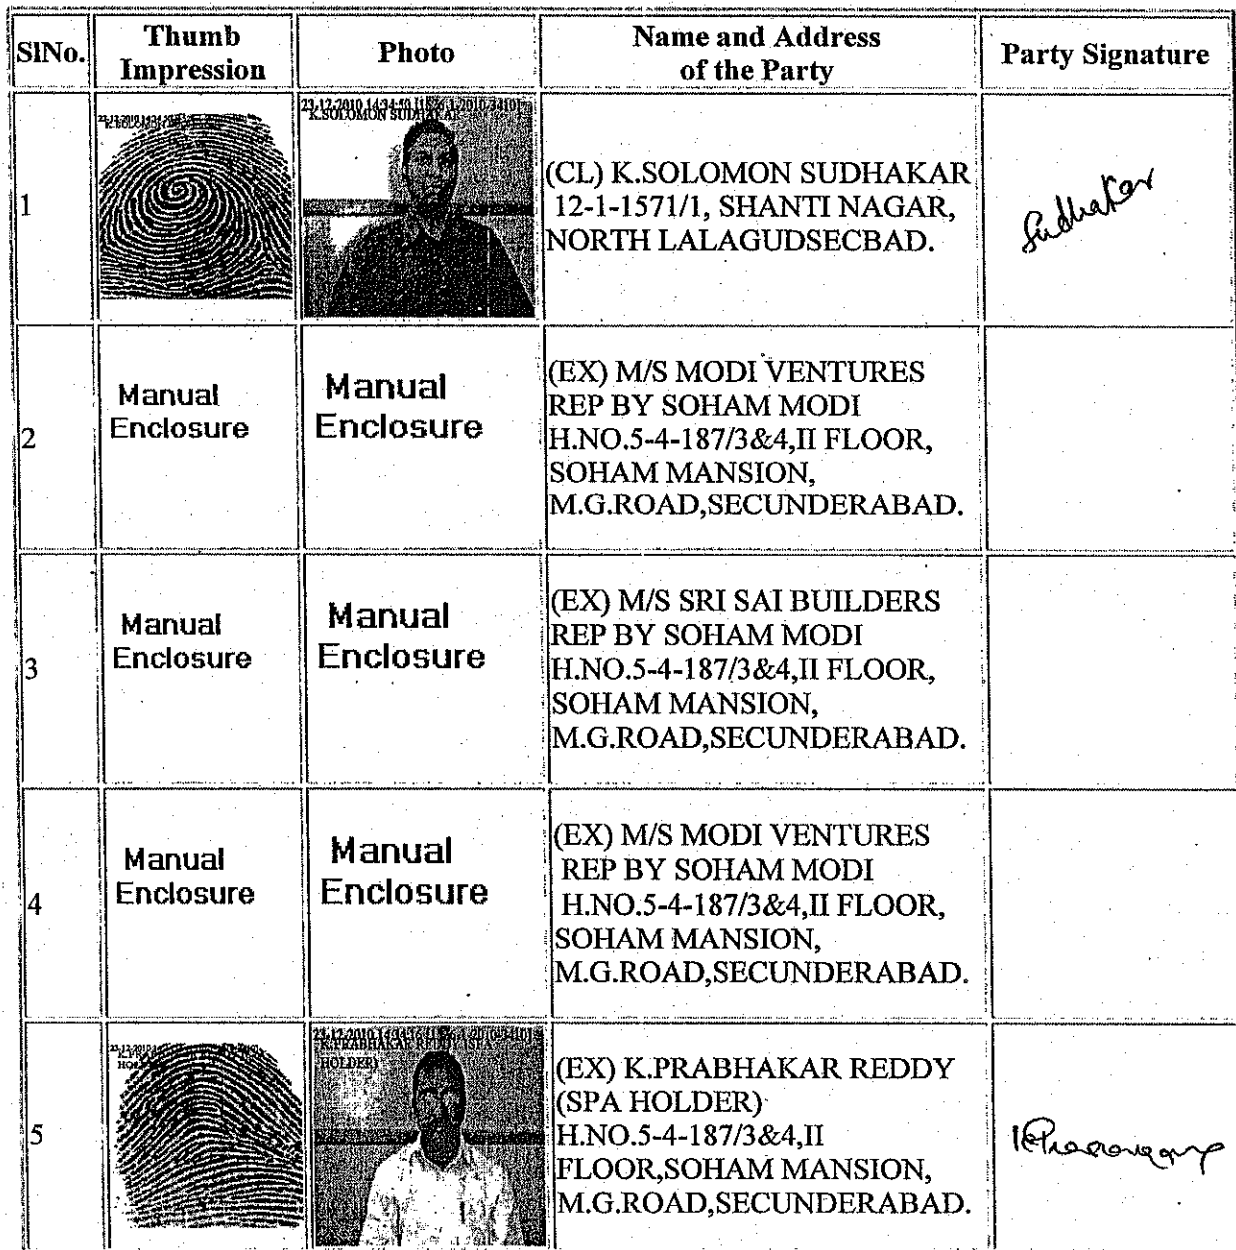 SlNo. Thumb Impression Photo Name and Address of the Party Party Signature
1
23-12-2010 14:34:50
K.SOLOMON SUDHAKAR
(CL) K.SOLOMON SUDHAKAR
12-1-1571/1, SHANTI NAGAR,
NORTH LALAGUDSECBAD.
Sudhakar
2
Manual
Enclosure
Manual
Enclosure
(EX) M/S MODI VENTURES
REP BY SOHAM MODI
H.NO.5-4-187/3&4,II FLOOR,
SOHAM MANSION,
M.G.ROAD,SECUNDERABAD.
3
Manual
Enclosure
Manual
Enclosure
(EX) M/S SRI SAI BUILDERS
REP BY SOHAM MODI
H.NO.5-4-187/3&4,II FLOOR,
SOHAM MANSION,
M.G.ROAD,SECUNDERABAD.
4
Manual
Enclosure
Manual
Enclosure
(EX) M/S MODI VENTURES
REP BY SOHAM MODI
H.NO.5-4-187/3&4,II FLOOR,
SOHAM MANSION,
M.G.ROAD,SECUNDERABAD.
5
K.PRABHAKAR REDDY (SPA
HOLDER)
(EX) K.PRABHAKAR REDDY
(SPA HOLDER)
H.NO.5-4-187/3&4,II
FLOOR,SOHAM MANSION,
M.G.ROAD,SECUNDERABAD.